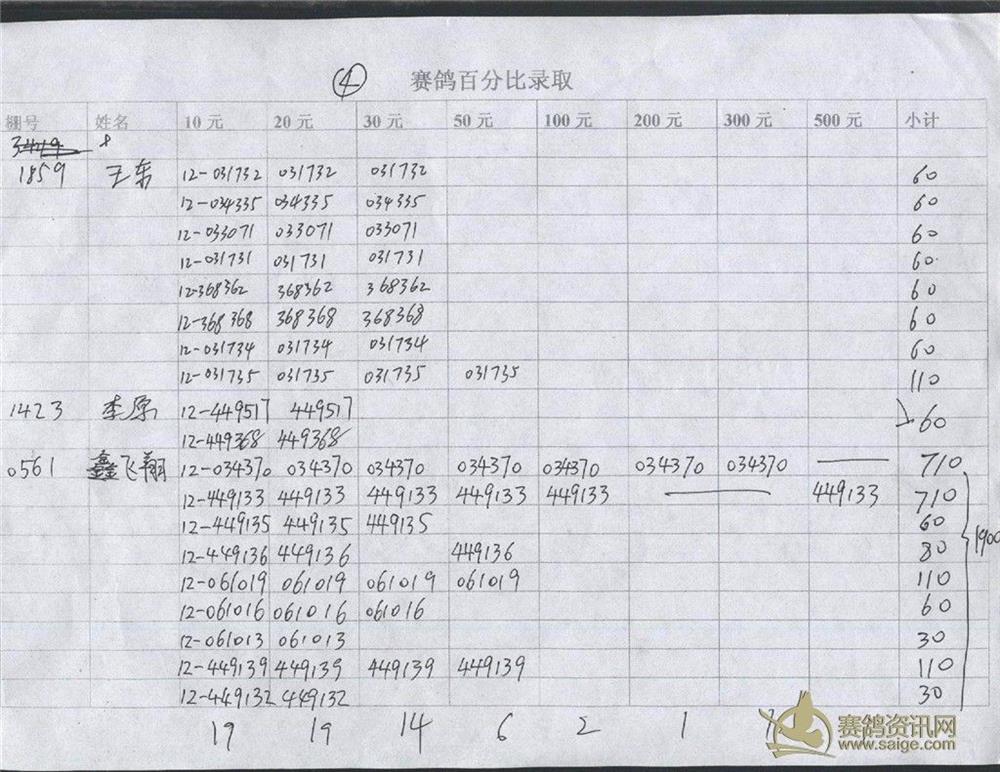 ④ 赛鸽百分比录取
棚号 姓名 10元 20元 30元 50元 100元 200元 300元 500元 小计
3419
1859 王东 12-031732 031732 031732 60
12-034335 034335 034335 60
12-033071 033071 033071 60
12-031731 031731 031731 60
12-368362 368362 368362 60
12-368368 368368 368368 60
12-031734 031734 031734 60
12-031735 031735 031735 031735 110
1423 李原 12-449517 449517 60
12-449368 449368
0561 鑫飞翔 12-034370 034370 034370 034370 034370 034370 034370 —— 710
12-449133 449133 449133 449133 449133 —— 449133 710
12-449135 449135 449135 60
12-449136 449136 449136 80
1900
12-061019 061019 061019 061019 110
12-061016 061016 061016 60
12-061013 061013 30
12-449139 449139 449139 449139 110
12-449132 449132 30
19 19 14 6 2 1
赛鸽资讯网
www.saige.com